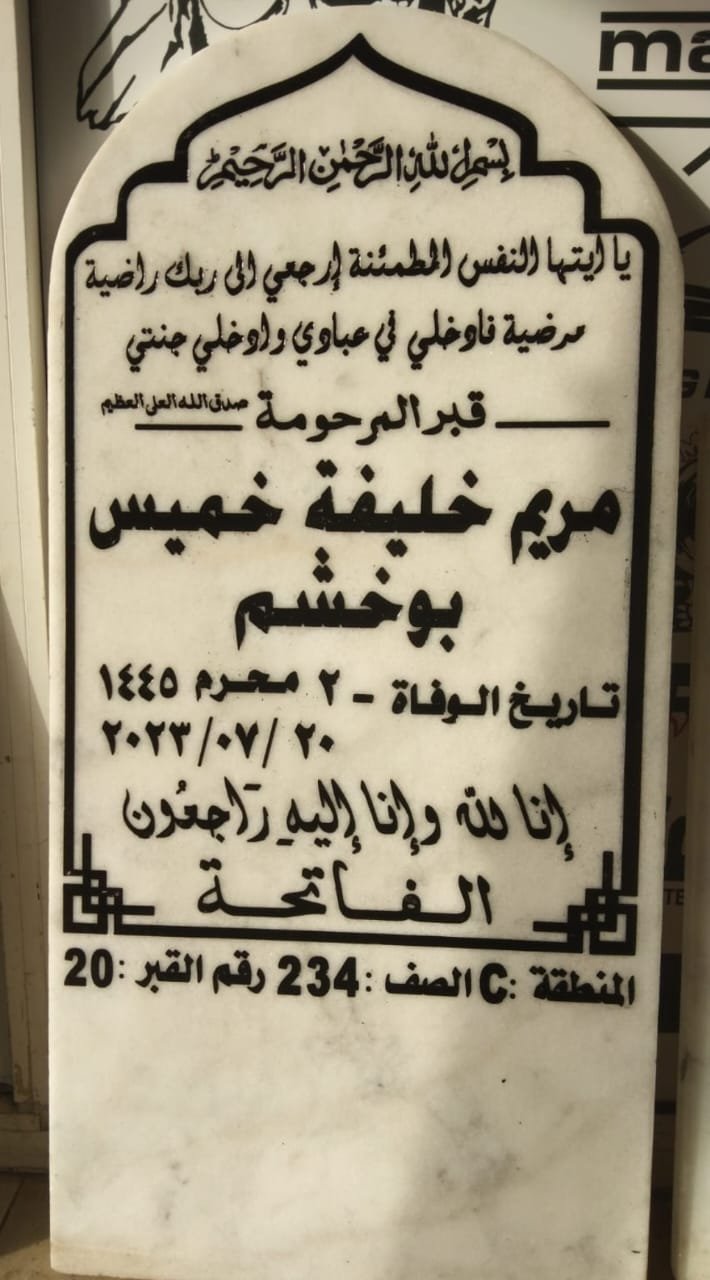 بسم الله الرحمن الرحيم
يا ايتها النفس المطمئنة إرجعي الى ربك راضية
مرضية فادخلي في عبادي وادخلي جنتي
صدق الله العلي العظيم
قبر المرحومة
مريم خليفة خميس
بوخشم
تاريخ الوفاة - ٢ محرم ١٤٤٥
٢٠ /٠٧/ ٢٠٢٣
إنا لله وإنا إليهِ رَاجعُون
الفاتحة
المنطقة :C الصف :234 رقم القبر :20
ma